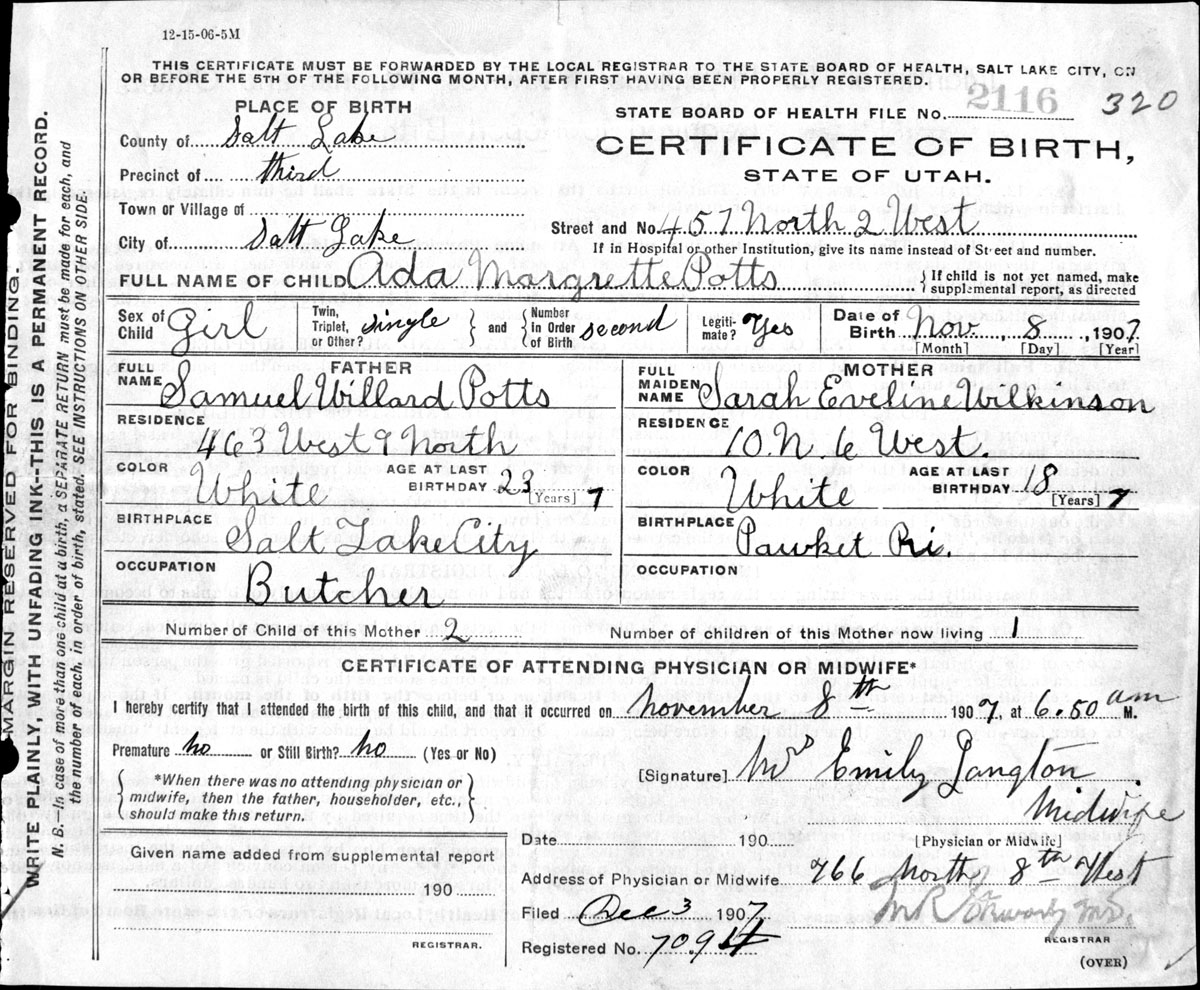 12-15-06-5M
THIS CERTIFICATE MUST BE FORWARDED BY THE LOCAL REGISTRAR TO THE STATE BOARD OF HEALTH, SALT LAKE CITY, ON
OR BEFORE THE 5TH OF THE FOLLOWING MONTH, AFTER FIRST HAVING BEEN PROPERLY REGISTERED.
PLACE OF BIRTH
STATE BOARD OF HEALTH FILE No. 2116 320
County of Salt Lake
CERTIFICATE OF BIRTH,
Precinct of third
STATE OF UTAH.
Town or Village of
City of Salt Lake
Street and No. 457 North 2 West
If in Hospital or other Institution, give its name instead of Street and number.
FULL NAME OF CHILD Ada Margrette Potts
{ If child is not yet named, make
supplemental report, as directed
Sex of Child Girl
Twin, Triplet, or Other? single } and { Number in Order of Birth second
Legiti-mate? Yes
Date of Birth Nov. 8, 1907
[Month] [Day] [Year]
FATHER
FULL NAME Samuel Willard Potts
RESIDENCE 463 West 9 North
COLOR White
AGE AT LAST BIRTHDAY 23 7
[Years]
BIRTHPLACE Salt Lake City
OCCUPATION Butcher
MOTHER
FULL MAIDEN NAME Sarah Eveline Wilkinson
RESIDENCE 10. N. 6 West.
COLOR White
AGE AT LAST BIRTHDAY 18 7
[Years]
BIRTHPLACE Pawket Ri.
OCCUPATION
Number of Child of this Mother 2
Number of children of this Mother now living 1
CERTIFICATE OF ATTENDING PHYSICIAN OR MIDWIFE*
I hereby certify that I attended the birth of this child, and that it occurred on November 8th 1907, at 6.50 am M.
Premature no or Still Birth? no (Yes or No)
{ *When there was no attending physician or
midwife, then the father, householder, etc.,
should make this return. }
[Signature] Mrs Emily Langton
Midwife
[Physician or Midwife]
Date 190
Given name added from supplemental report
190
REGISTRAR.
Address of Physician or Midwife 766 North 8th West
Filed Dec 3 1907
M.D.
Registered No. 7094
REGISTRAR
(OVER)
MARGIN RESERVED FOR BINDING.
WRITE PLAINLY, WITH UNFADING INK—THIS IS A PERMANENT RECORD.
N. B.—In case of more than one child at a birth, a SEPARATE RETURN must be made for each, and
the number of each, in order of birth, stated. SEE INSTRUCTIONS ON OTHER SIDE.